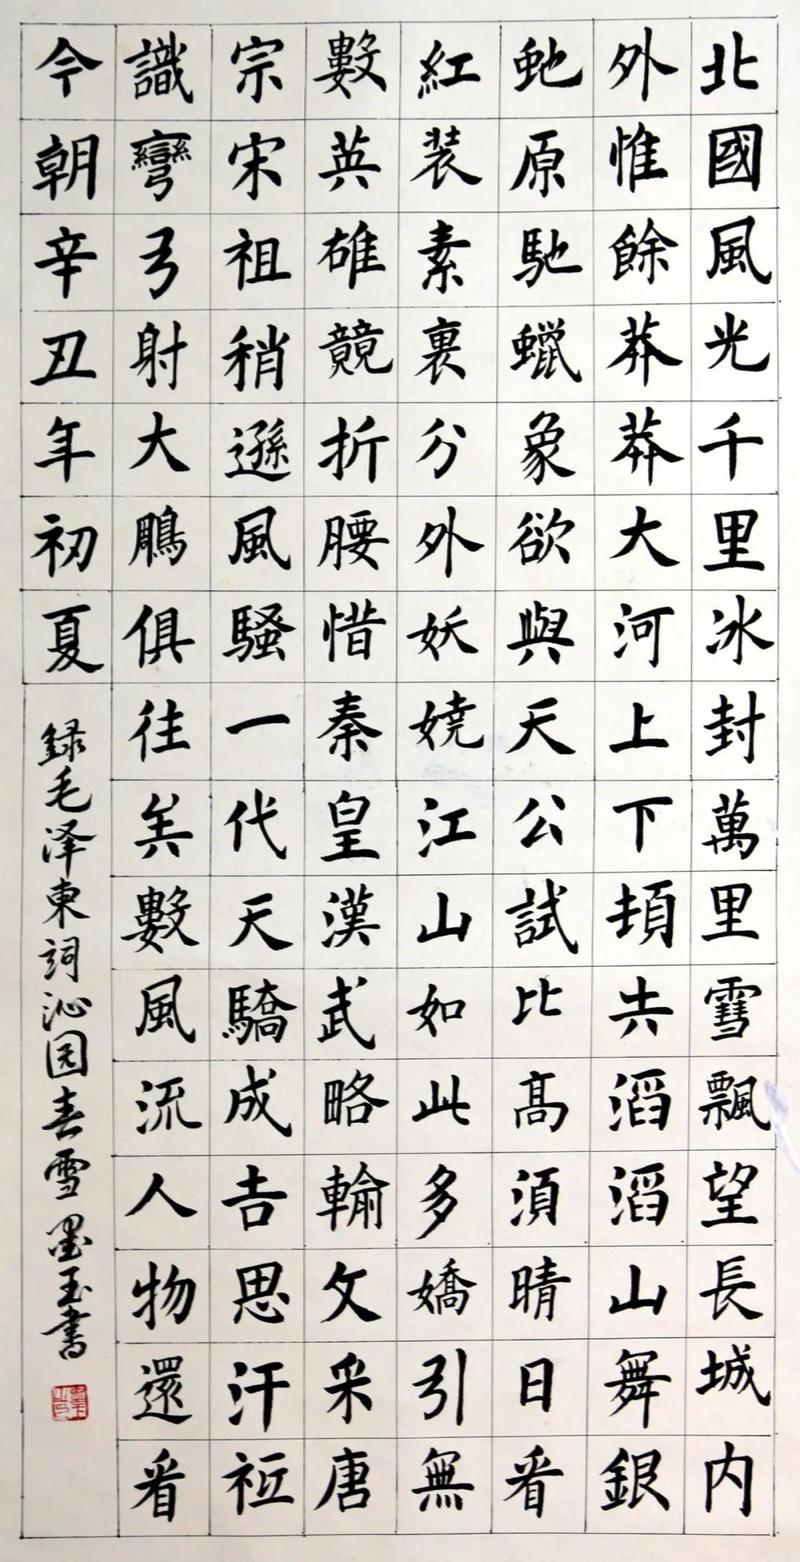 北國風光千里冰封萬里雪飄望長城内
外惟餘莽莽大河上下頓失滔滔山舞銀
虵原馳蠟象欲與天公試比高須晴日看
紅装素裹分外妖嬈江山如此多嬌引無
數英雄競折腰惜秦皇漢武略輸文采唐
宗宋祖稍遜風騷一代天驕成吉思汗祗
識彎弓射大鵰俱往矣數風流人物還看
今朝辛丑年初夏
録毛泽東詞沁园春雪墨玉書